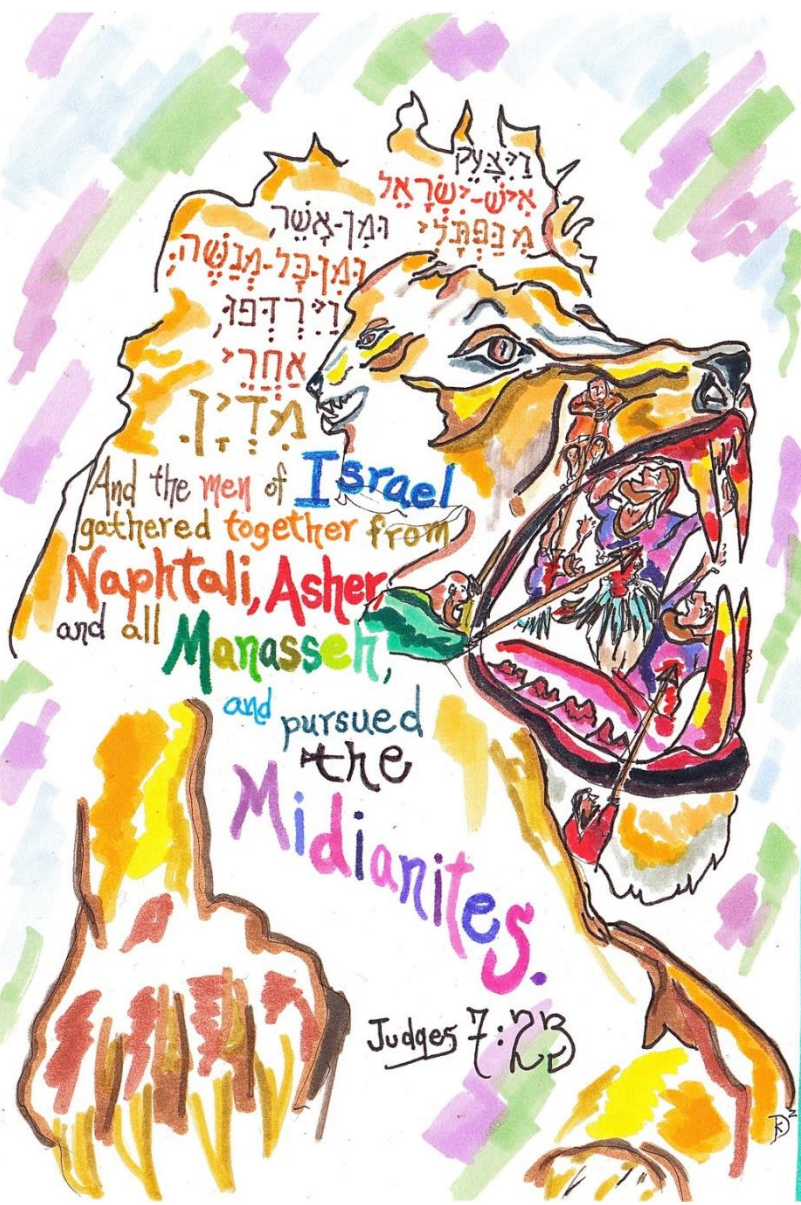 וַיִּצָּעֵק
אִישׁ-יִשְׂרָאֵל
מִנַּפְתָּלִי
וּמִן-אָשֵׁר,
וּמִן-כָּל-מְנַשֶּׁה;
וַיִּרְדְּפוּ,
אַחֲרֵי
מִדְיָן.
And the men of Israel
gathered together from
Naphtali, Asher,
and all
Manasseh,
and pursued
the
Midianites.
Judges 7:23